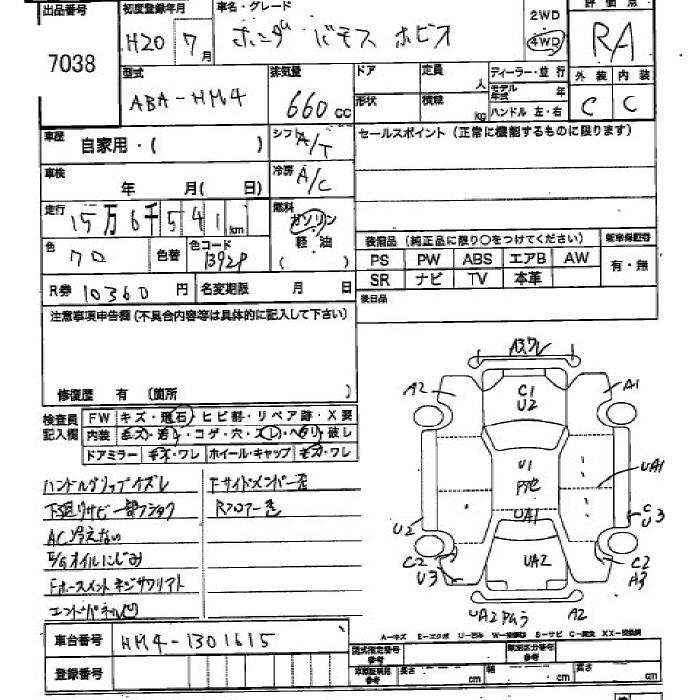 出品番号 初度登録年月 車名・グレード 2WD 評価点
7038 H20 7月 ホンダ バモス ホビオ 4WD RA
型式 排気量 ドア 定員 人 ディーラー・並行 外装 内装
ABA-HM4 660cc 形状 積載 kg モデル年式 年 ハンドル 左・右 C C
車歴 自家用・( ) シフト A/T セールスポイント(正常に機能するものに限ります)
車検 年 月( 日) 冷房 A/C
走行 15万6千541km 燃料 ガソリン 軽油 ( )
色 クロ 色替 色コード B92P
装備品(純正品に限り○をつけてください) 新車保証書
PS PW ABS エアB AW 有・無
SR ナビ TV 本革
R券 10360円 名変期限 月 日 後日品
注意事項申告欄(不具合内容等は具体的に記入して下さい)
修復歴 有 (箇所 )
検査員記入欄 FW キズ・飛石・ヒビ割・リペア跡・X要
内装 キズ・汚れ・コゲ・穴・スレ・ヘタリ・破レ
ドアミラー キズ・ワレ ホイール・キャップ キズ・ワレ
ハンドルグリップキズスレ Fサイドメンバー歪
下廻りサビ一部フショク Rフロアー歪
AC冷えない
E/Gオイルにじみ
エンドパネル凹
A3ワレ
A2 C1 U2 A1
U1
UA1 UA1
U2 C U3
UA2
U3 C2 A3
UA2 A2
A-キズ E-エクボ U-凹み W-補修跡 S-サビ C-腐食 XX-交換済
車台番号 HM4-1301615 型式指定番号 参考 類別区分番号 参考
登録番号 車庫証明用 参考 長さ cm 幅 cm 高さ cm